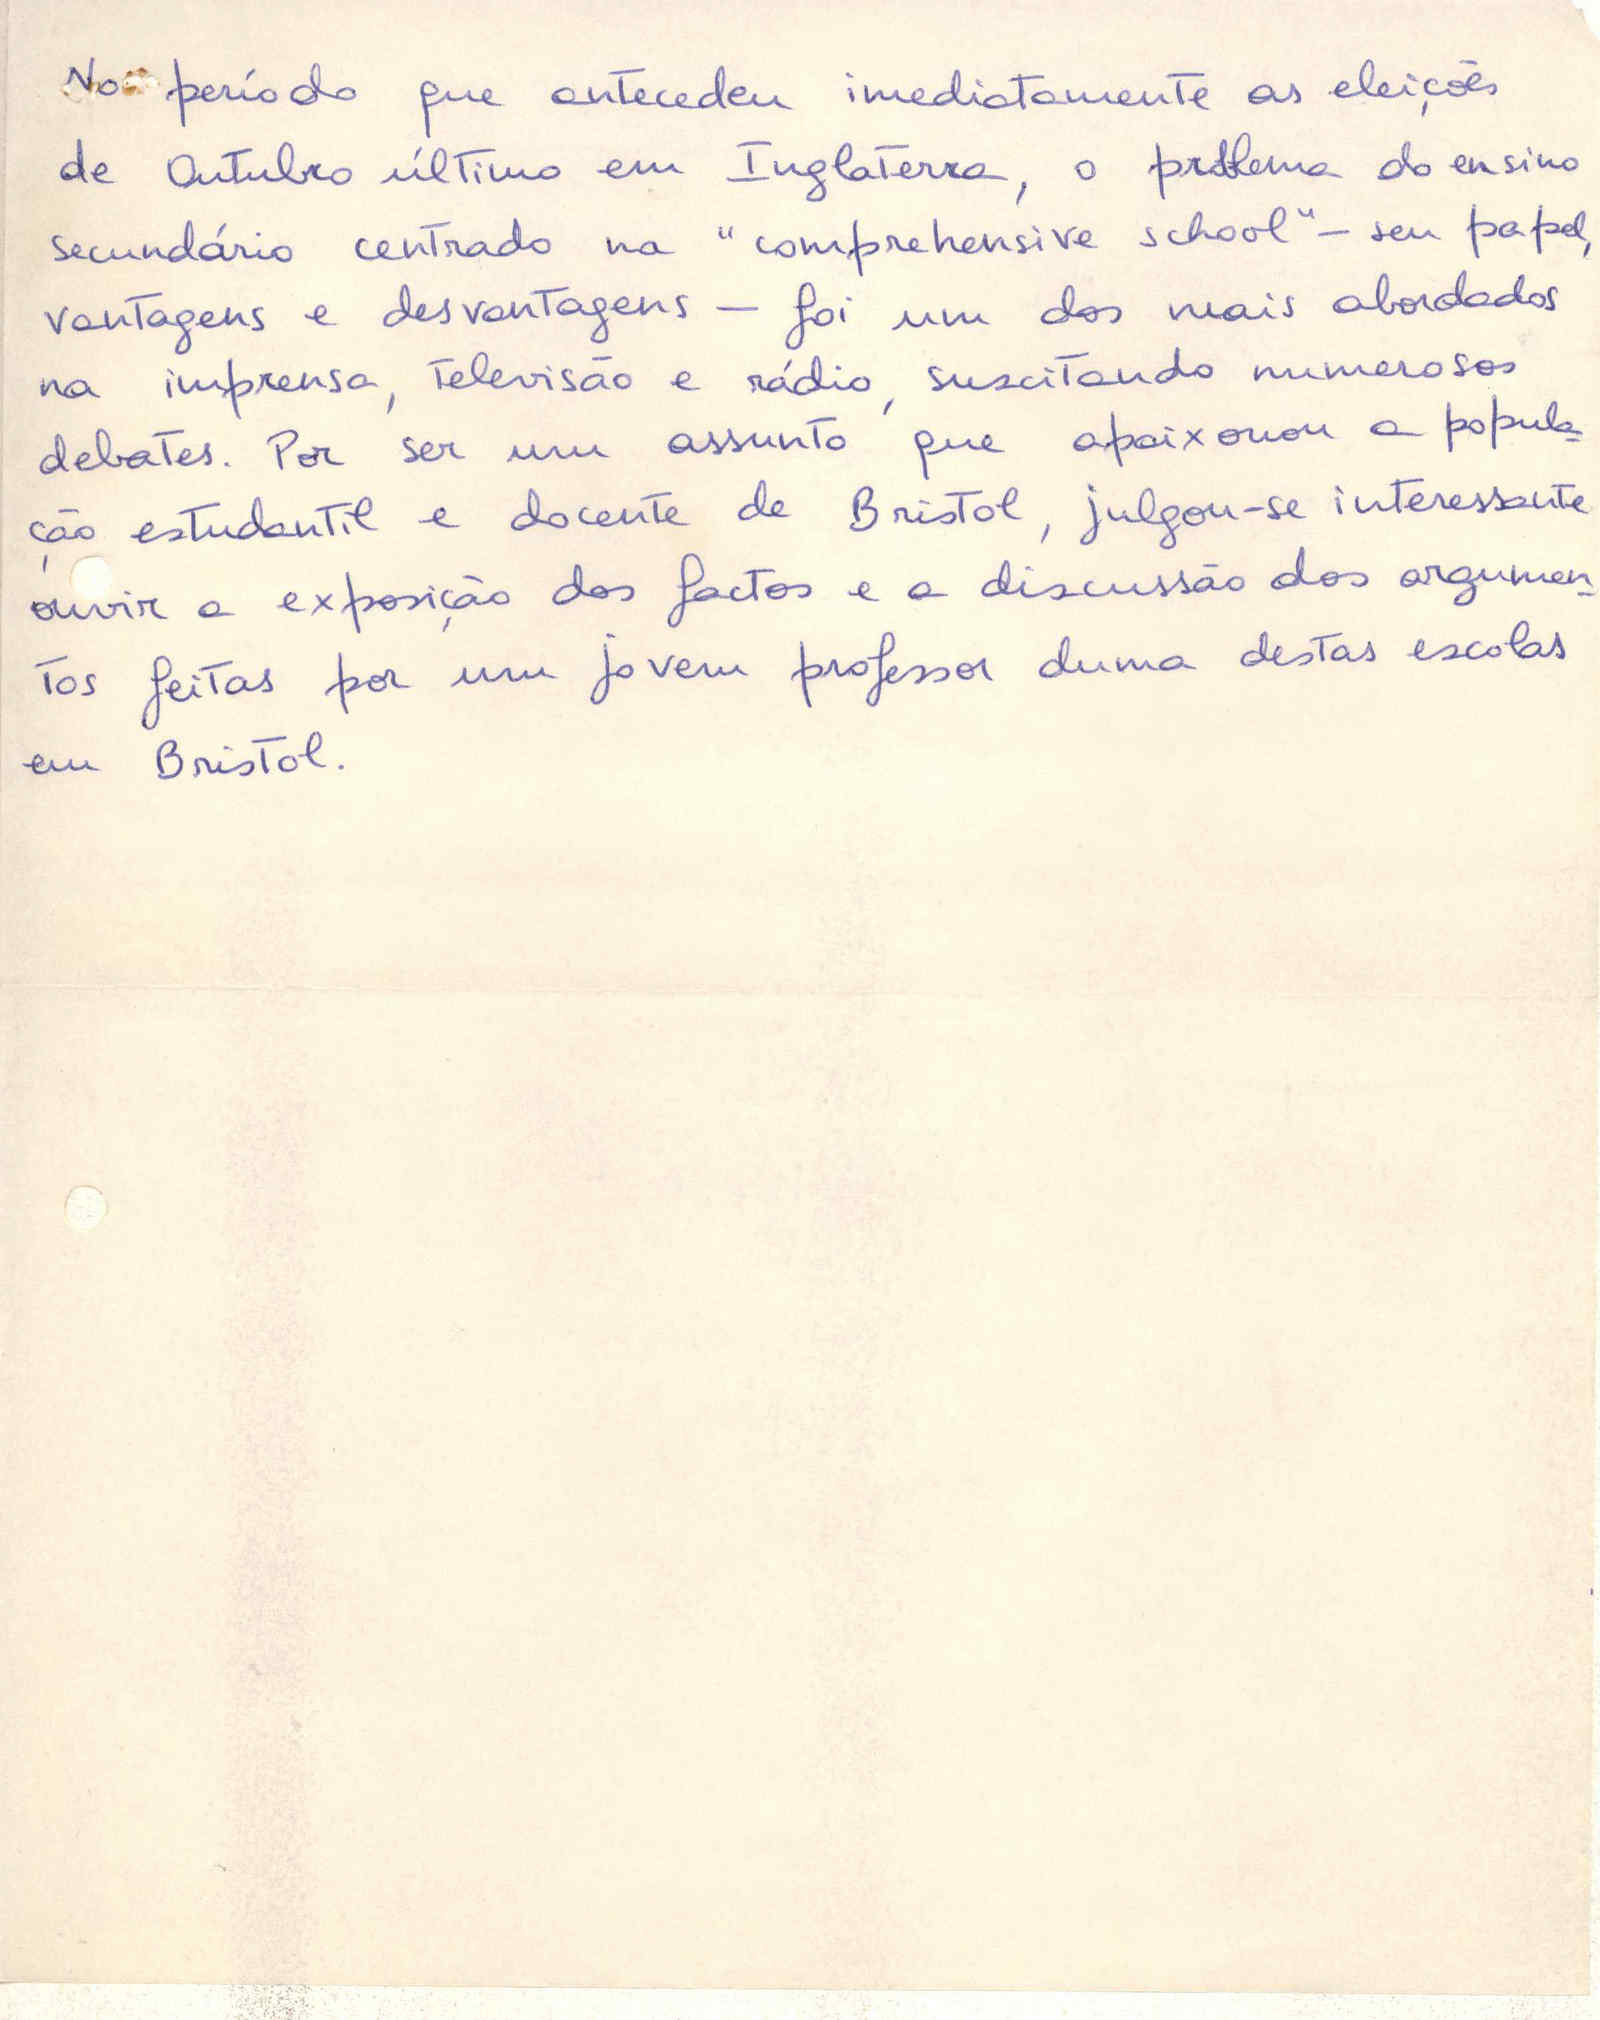 No período que antecedeu imediatamente as eleições
de Outubro último em Inglaterra, o problema do ensino
secundário centrado na "comprehensive school" – seu papel,
vantagens e desvantagens – foi um dos mais abordados
na imprensa, televisão e rádio, suscitando numerosos
debates. Por ser um assunto que apaixonou a popula-
ção estudantil e docente de Bristol, julgou-se interessante
ouvir a exposição dos factos e a discussão dos argumen-
tos feitas por um jovem professor duma destas escolas
em Bristol.